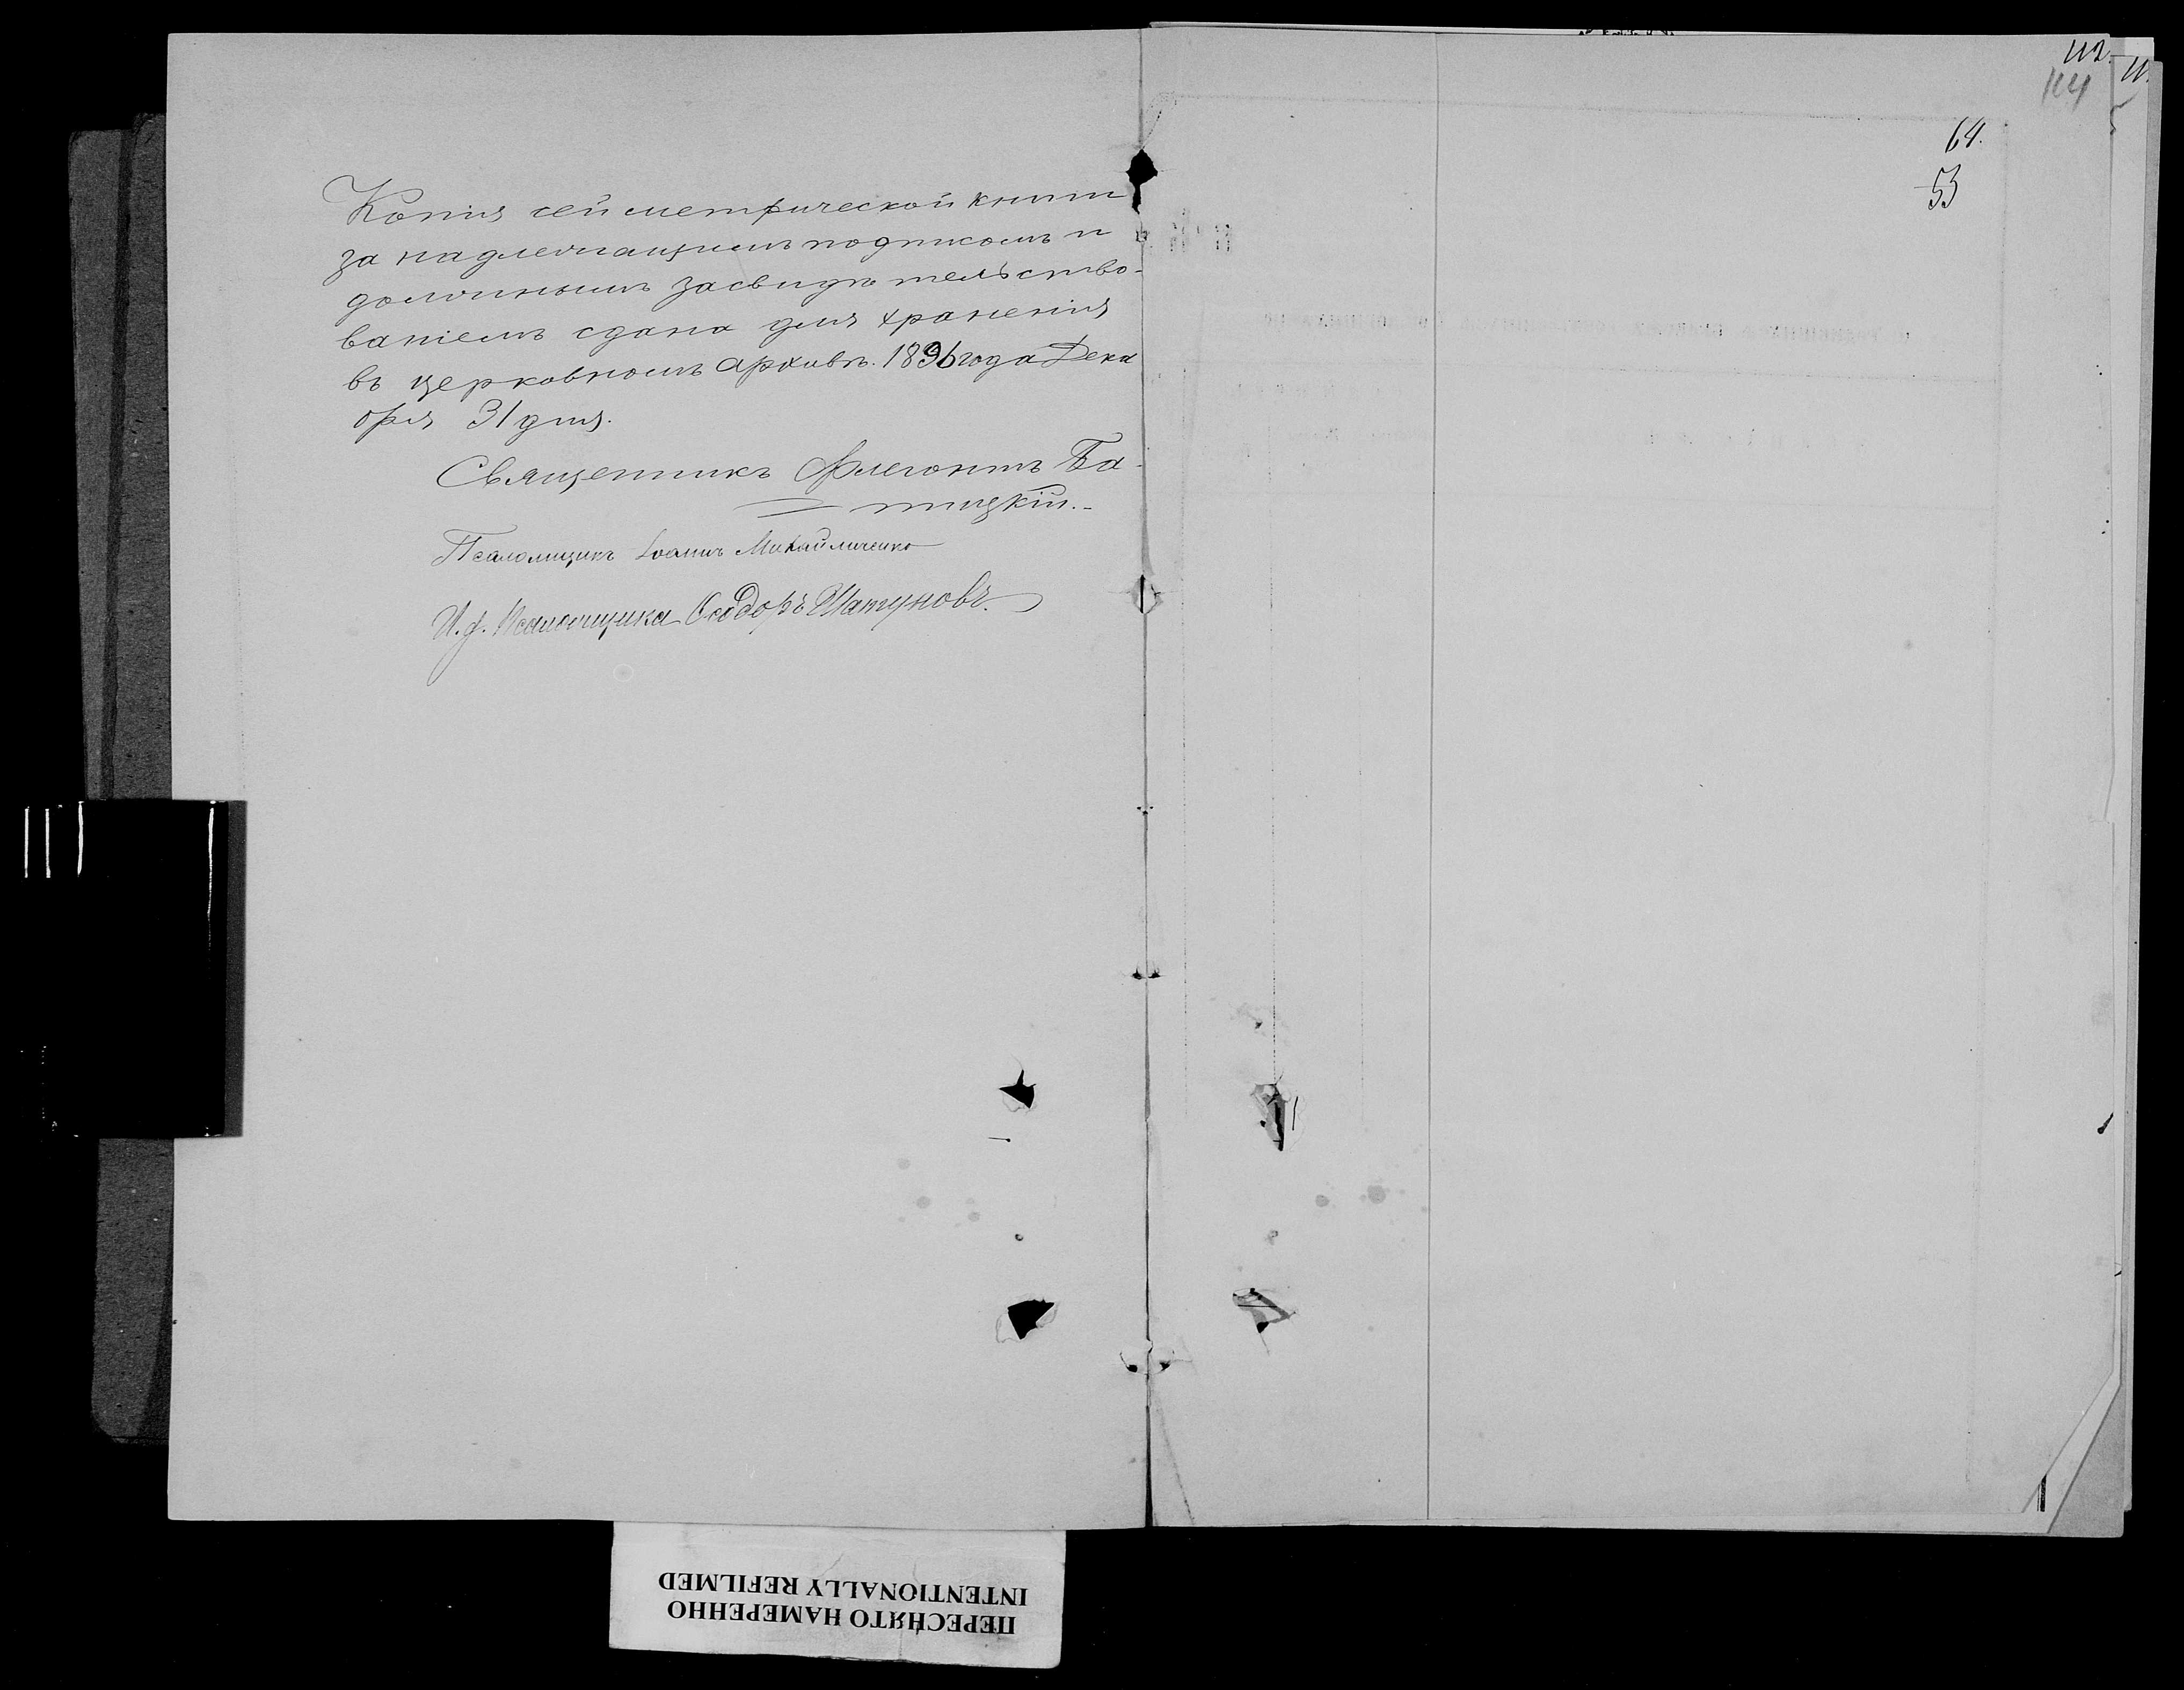 Копія сей метрической книги
за надлежащимъ подписомъ и
должнымъ засвидѣтельство-
ваніемъ сдана для храненія
въ церковномъ архивѣ. 1896 года Дека
бря 31 дня.
Священникъ Флегонтъ Ба-
тицкій.-
Псаломщикъ Іоаннъ Михайличенко
И. д. Псаломщика Ѳеодоръ Шатуновъ.
112.
11.
114
64.
53
ПЕРЕСНЯТО НАМЕРЕННО
INTENTIONALLY REFILMED